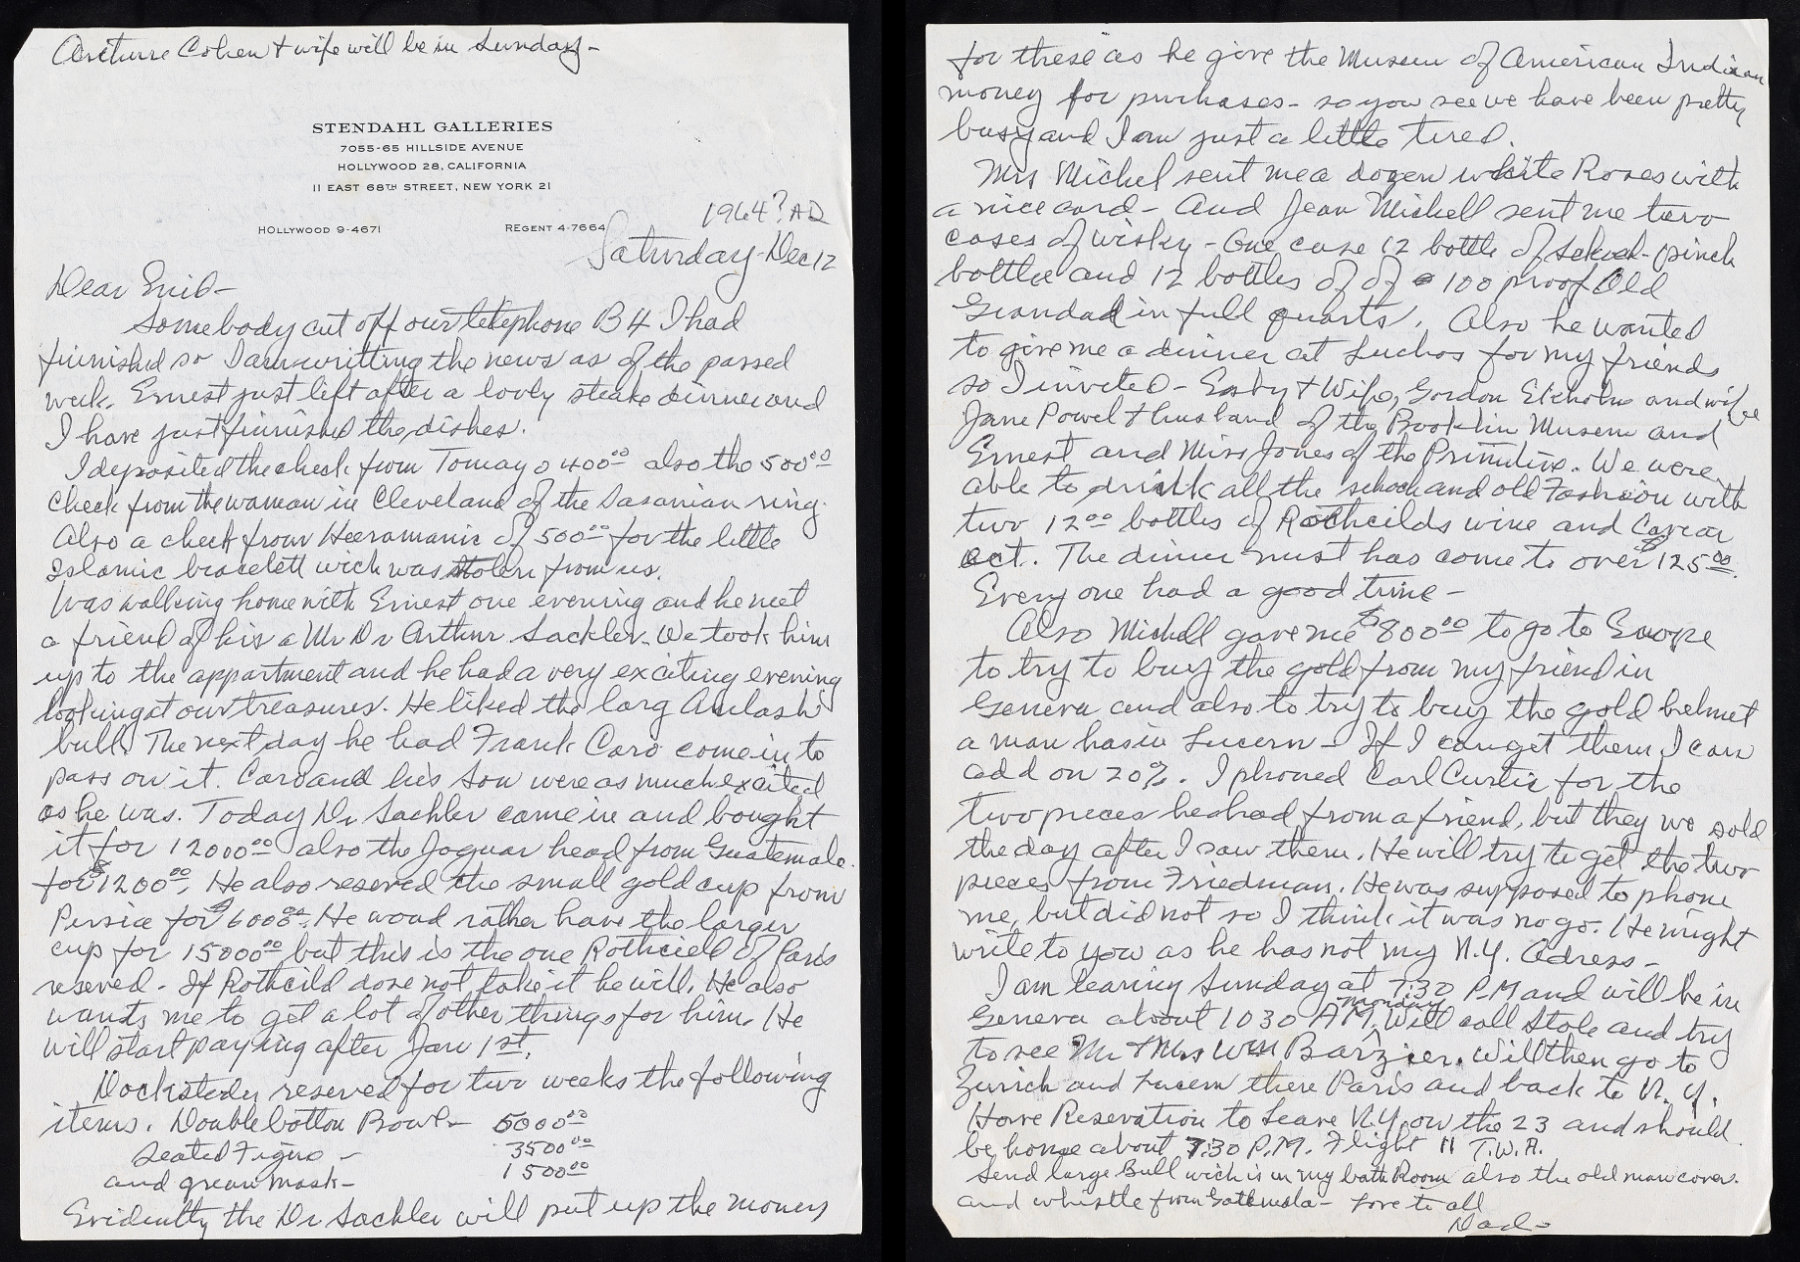 Arcturre Cohen + wife will be in Sunday -
STENDAHL GALLERIES
7055-65 HILLSIDE AVENUE
HOLLYWOOD 28, CALIFORNIA
11 EAST 68TH STREET, NEW YORK 21
1964? AD
HOLLYWOOD 9-4671
REGENT 4-7664
Saturday - Dec 12
Dear Enid -
Somebody cut off our telephone B4 I had
finnished so I am writting the news as of the passed
week. Ernest just left after a lovly steake dinner and
I have just finnished the dishes.
I deposited the check from Tomayo 400.00 also the 500.00
check from the woman in Cleveland of the Sasanian ring.
Also a check from Heeramanic of 500.00 for the little
Islamic bracelett wich was stolen from us.
Was walking home with Ernest one evening and he met
a friend of his a Mr Dr Arthur Sackler - We took him
up to the appartment and he had a very exciting evening
looking at our treasures. He liked the larg Amlash
bull. The next day he had Frank Caro come in to
pass on it. Caro and his son were as much excited
as he was. Today Dr Sackler came in and bought
it for 12000.00 also the Jaguar head from Guatemala
for $1200.00. He also reserved the small gold cup from
Persia for $6000.00. He woud rather have the larger
cup for 15000.00 but this is the one Rothcield of Paris
reserved - If Rothcild dose not take it he will. He also
wants me to get a lot of other things for him. He
will start paying after Jan 1st.
Dockstedu reserved for two weeks the following
items. Double botton Bowl - 5000.00
Seated Figure - 3500.00
and green mask - 1500.00
Evidently the Dr Sackler will put up the money
for these as he give the Museum of American Indian
money for purchases - so you see we have been pretty
busy and I am just a little tired.
Mrs Michel sent me a dozen white Roses with
a nice card - And Jean Michell sent me two
cases of wisky - One case 12 bottle of pinch
bottle and 12 bottles of of 100 proof Old
Grandad in full quarts. Also he wanted
to give me a dinner at Luchos for my friends
so I invited - Easby + Wife, Gordon Ekholm and wife
Jane Powel + husband of the Brooklin Museum and
Ernest and Miss Jones of the Primitive. We were
able to drink all the and old Fashion with
two 12.00 bottles of Rothcilds wine and Caviar
ect. The dinner must has come to over $125.00.
Every one had a good time -
Also Michell gave me $800.00 to go to Europe
to try to buy the gold from my friend in
Geneva and also to try to buy the gold helmet
a man has in Lucern - If I can get them I can
add on 20%. I phoned Carl Curtis for the
two pieces he had from a friend, but they wo sold
the day after I saw them. He will try to get the two
pieces from Friedman. He was supposed to phone
me, but did not so I think it was no go. He might
write to you as he has not my N.Y. Adress -
I am leaving Sunday at 7:30 P.M and will be in
Geneva about 1030 AM. monday Will call Stole and try
to see Mr + Mrs Wm Barzier. Will then go to
Zurich and Lucern then Paris and back to N.Y.
Have Reservation to Leave N.Y. on the 23 and should
be home about 7:30 P.M. Flight 11 T.W.A.
Send large Bull wich is in my bath Room also the old man cover.
and whistle from Gatemala - Love to all
Dad -